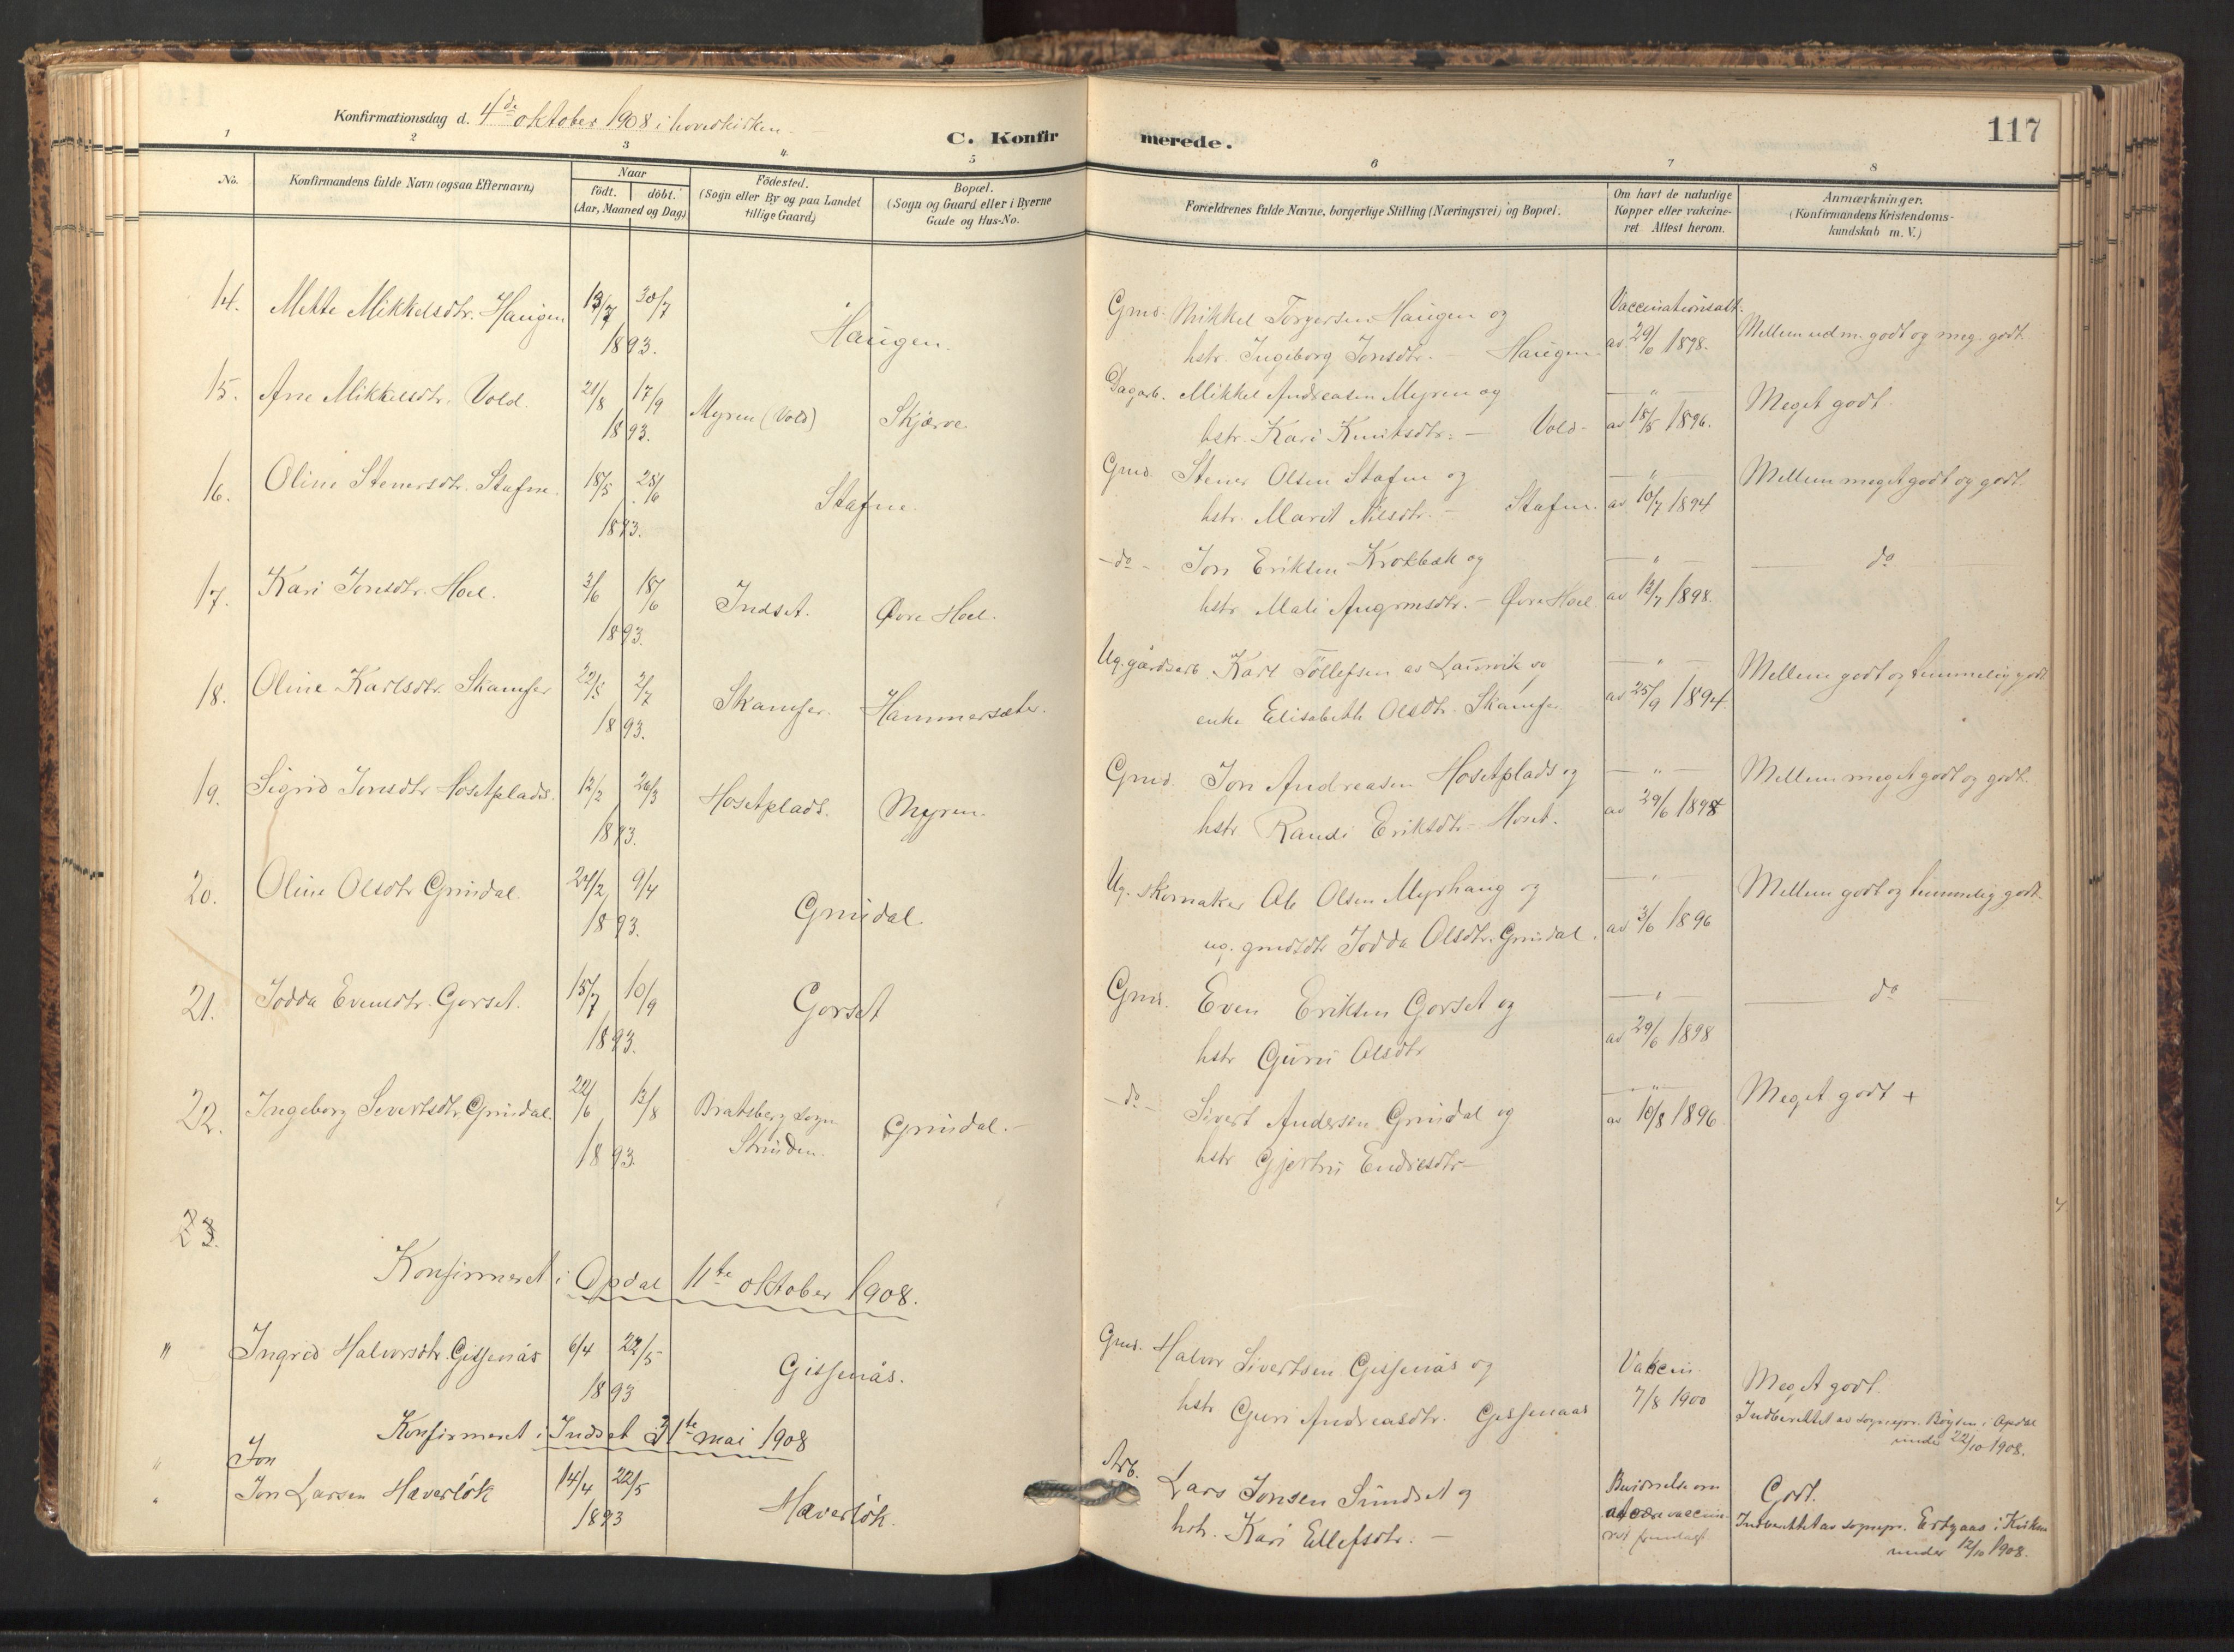 Konfirmationsdag d. 4de oktober 1908 i hovedkirken.
C. Konfirmerede.
117
1 2 3 4. 5 6 7 8
No.
Konfirmandens fulde Navn (ogsaa Efternavn)
Naar
födt. döbt.
(Aar, Maaned og Dag)
Födested.
(Sogn eller By og paa Landet
tillige Gaard)
Bopæl.
(Sogn og Gaard eller i Byerne
Gade og Hus-No.
Forældrenes fulde Navne, borgerlige Stilling (Næringsvei) og Bopæl.
Om havt de naturlige
Kopper eller vakcine-
ret Attest herom.
Anmærkninger.
(Konfirmandens Kristendoms-
kundskab m. V.)
14. Mette Mikkelsdtr. Haugen 13/7 30/7 1893. Haugen. Gmd. Mikkel Torgersen Haugen og
hstr. Ingeborg Jonsdtr. - Haugen. Vaccinationsatt.
av 29/6 1898. Mellem udm. godt og meg. godt.
15. Ane Mikkelsdtr. Vold. 21/8 17/9 1893. Myren (Vold) Skjørve. Dagarb. Mikkel Andreasen Myren og
hstr. Kari Knutsdtr. - Vold - — " —
av 18/5 1896. Meget godt.
16. Oline Stenersdtr. Stafne. 18/5 25/6 1893. Stafne. Gmd. Stener Olsen Stafne og
hstr. Marit Nilsdtr. - Stafne. — " —
av 10/7 1894 Mellem meget godt og godt.
17. Kari Jonsdtr. Hoel. 3/6 18/6 1893. Indset. Øvre Hoel. - do - Jon Eriksen Krokbæk og
hstr. Mali Angrmsdtr. - Øvre Hoel. — " —
av 12/7 1898. do
18. Oline Karlsdtr. Skamfer 22/5 2/7 1893. Skamfer. Hammersæter. Ug. gårdsarb. Karl Tollefsen av Laurvik og
enke Elisabeth Olsdtr. Skamfer — " —
av 25/9 1894. Mellem godt og temmelig godt
19. Sigrid Jonsdtr Hosetplads. 12/2 26/3 1893. Hosetplads. Myren. Gmd. Jon Andreasen Hosetplads og
hstr Randi Eriksdtr - Hoset. — " —
av 29/6 1898 Mellem meget godt og godt.
20. Oline Olsdtr Grindal. 24/2 9/4 1893. Grindal. Ug. skomaker Ole Olsen Myrhaug og
ug. gmdsdtr Jodda Olsdtr. Grindal. — " —
av 3/6 1896 Mellem godt og temmelig godt.
21. Jodda Evensdtr. Gorset. 15/7 10/9 1893. Gorset Gmd. Even Eriksen Gorset og
hstr Guru Olsdtr — " —
av 29/6 1898 do
22. Ingeborg Sivertsdtr. Grindal. 22/6 13/8 1893. Bratsberg sogn
Strinden. Grindal. - - do - Sivert Andersen Grindal og
hstr Gjertru Endresdtr - — " —
av 10/8 1896. Meget godt +
23.
Konfirmeret i Opdal 11te oktober 1908.
" Ingrid Halvorsdtr. Gisfenås 6/4 22/5 1893 Gisfenås. Gmd. Halvor Sivertsen Gisfenås og
hstr Guri Andreasdtr. Gisfenaas Vakcin.
7/8 1900 Meget godt.
Indberettet av sognepr. Bøgden i Opdal
under 22/10 1908.
Konfirmeret i Indset 31te mai 1908
" Jon
" Jon Larsen Haverløk 14/4 22/5 1893 Haverløk. Arb. Lars Jonsen Sundset og
hstr. Kari Ellefsdtr. - Bevidnelse om
at være vaccin-
ret Godt.
Indberettet av sognepr. i
under 12/10 1908.